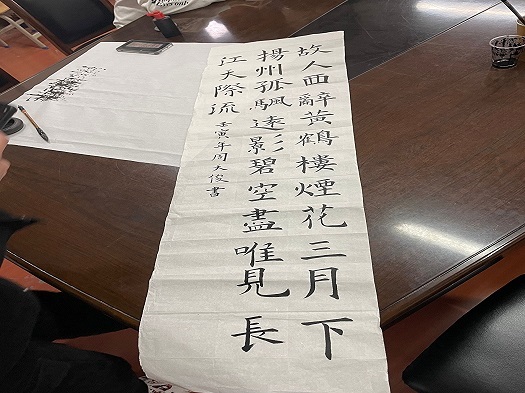 故人西辭黃鶴樓煙花三月下
揚州孤颿遠影碧空盡唯見長
江天際流 壬寅年周大俊書